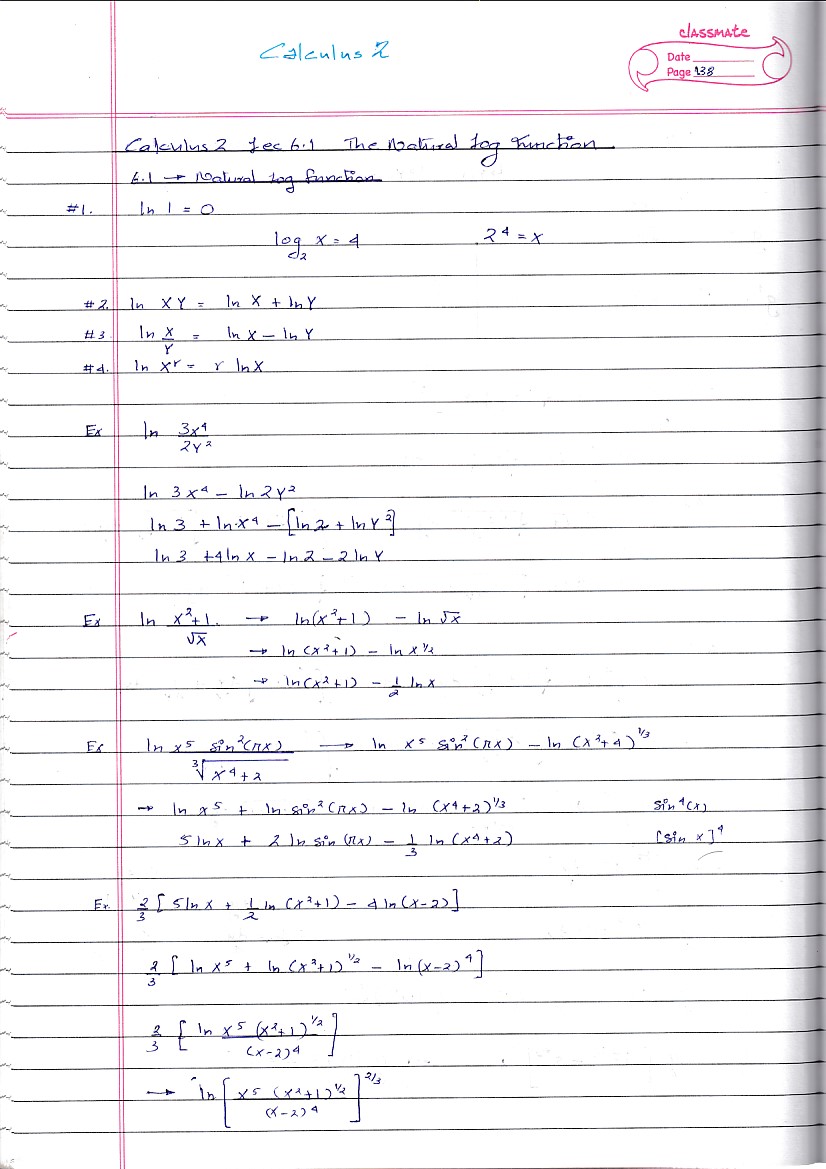 Calculus 2
classmate
Date
Page 138
Calculus 2 Lec 6.1 The Natural Log Function
6.1 → Natural Log function
#1. ln 1 = 0
log₂ x = 4 2⁴ = x
#2. ln XY = ln X + ln Y
#3 ln X/Y = ln X − ln Y
#4. ln Xʳ = r ln X
Ex ln 3x⁴/2Y²
ln 3x⁴ − ln 2Y²
ln 3 + ln x⁴ − [ln 2 + ln Y²]
ln 3 + 4 ln x − ln 2 − 2 ln Y
Ex ln x²+1/√x → ln(x²+1) − ln √x
→ ln (x²+1) − ln x^1/2
→ ln(x²+1) − 1/2 ln x
Ex ln x⁵ sin²(πx)/∛x⁴+2 → ln x⁵ sin²(πx) − ln (x²+4)^1/3
→ ln x⁵ + ln sin²(πx) − ln (x⁴+2)^1/3 sin⁴(x)
5 ln x + 2 ln sin (πx) − 1/3 ln (x⁴+2) [sin x]⁴
Ex. 2/3 [5 ln x + 1/2 ln (x²+1) − 4 ln (x−2)]
2/3 [ln x⁵ + ln (x²+1)^1/2 − ln (x−2)⁴]
2/3 [ln x⁵ (x²+1)^1/2/(x−2)⁴]
→ ln [x⁵ (x²+1)^1/2/(x−2)⁴]^2/3